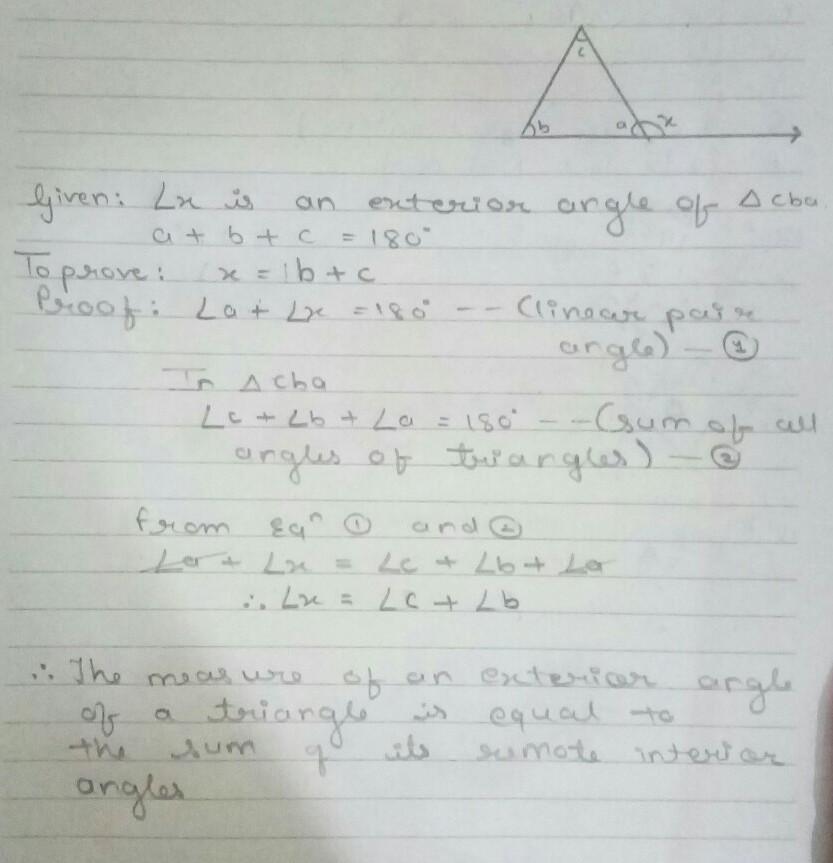 c
b a x
Given: ∠x is an exterior angle of △cba.
a + b + c = 180°
To prove: x = b + c
Proof: ∠a + ∠x = 180° -- (linear pair
angle) — ①
In △cba
∠c + ∠b + ∠a = 180° -- (sum of all
angles of triangles) — ②
from Eqⁿ ① and ②
∠a + ∠x = ∠c + ∠b + ∠a
∴ ∠x = ∠c + ∠b
∴ The measure of an exterior angle
of a triangle is equal to
the sum of its remote interior
angles